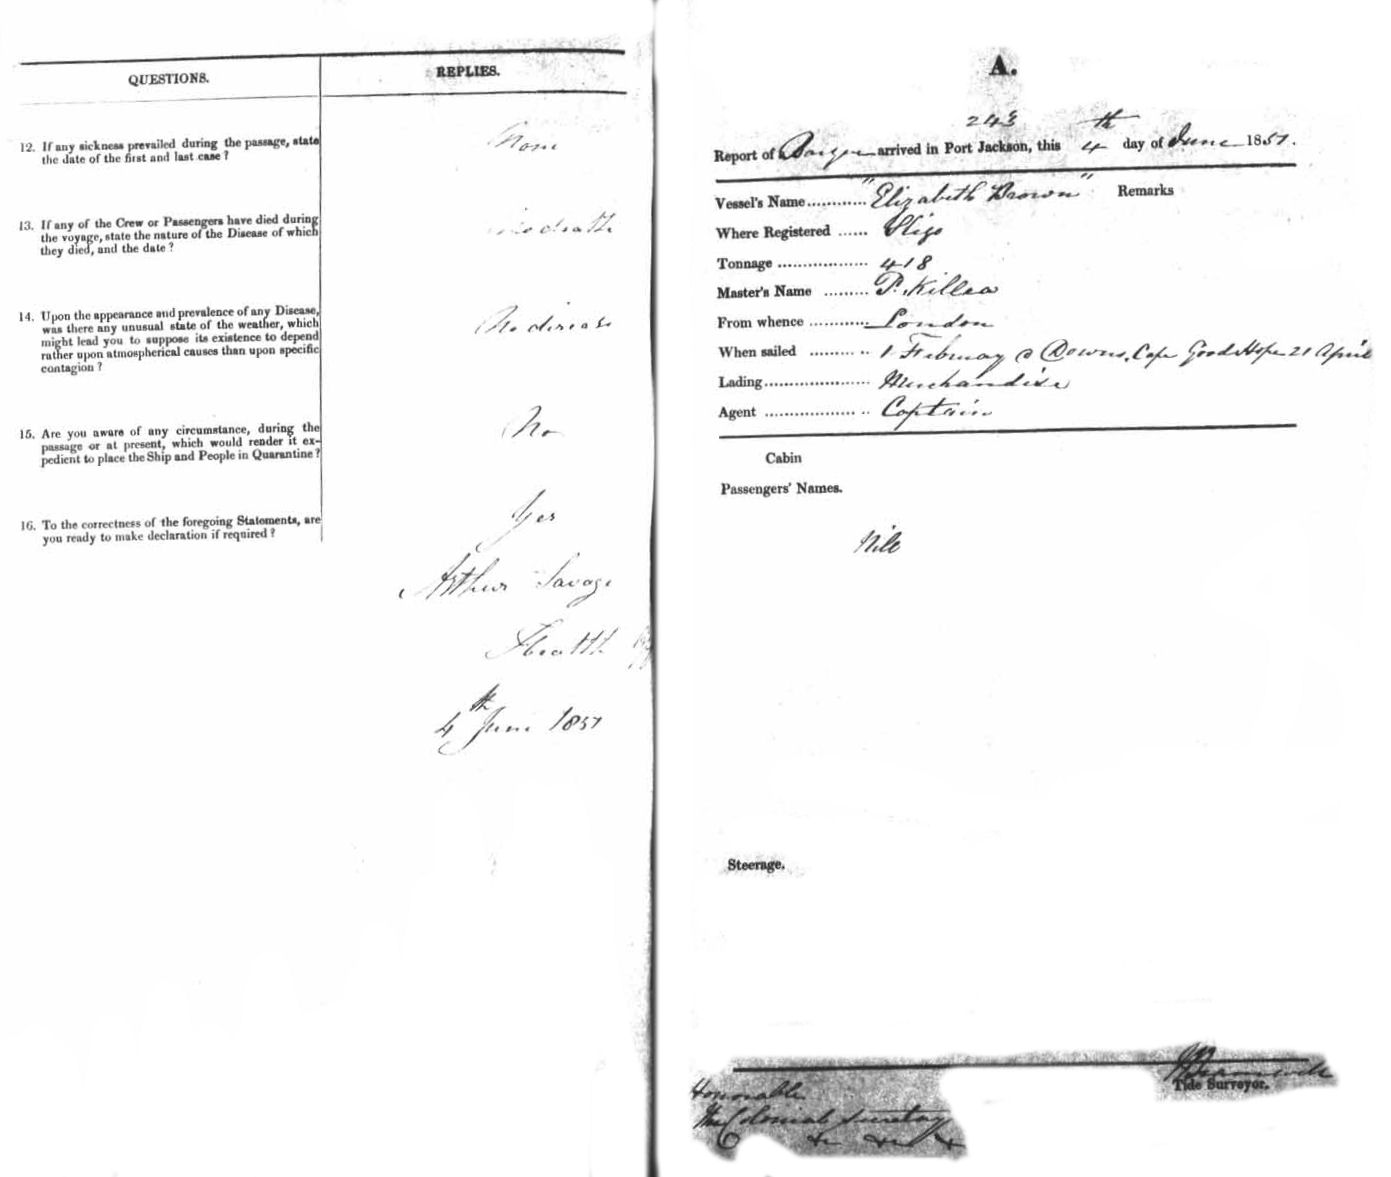 QUESTIONS.
REPLIES.
12. If any sickness prevailed during the passage, state
the date of the first and last case?
None
13. If any of the Crew or Passengers have died during
the voyage, state the nature of the Disease of which
they died, and the date?
No death
14. Upon the appearance and prevalence of any Disease,
was there any unusual state of the weather, which
might lead you to suppose its existence to depend
rather upon atmospherical causes than upon specific
contagion?
No disease
15. Are you aware of any circumstance, during the
passage or at present, which would render it ex-
pedient to place the Ship and People in Quarantine?
No
16. To the correctness of the foregoing Statements, are
you ready to make declaration if required?
Yes
Arthur Savage
Health
4th June 1851
A.
243
Report of Barque arrived in Port Jackson, this 4th day of June 1851.
Vessel's Name ............ "Elizabeth Brown" Remarks
Where Registered ...... Sligo
Tonnage .................. 418
Master's Name ......... P. Killea
From whence ............ London
When sailed ........... 1 February @ Downs, Cape Good Hope 21 April
Lading..................... Merchandise
Agent .................... Captain
Cabin
Passengers' Names.
Nil
Steerage.
Tide Surveyor.
Honorable
The Colonial Secretary